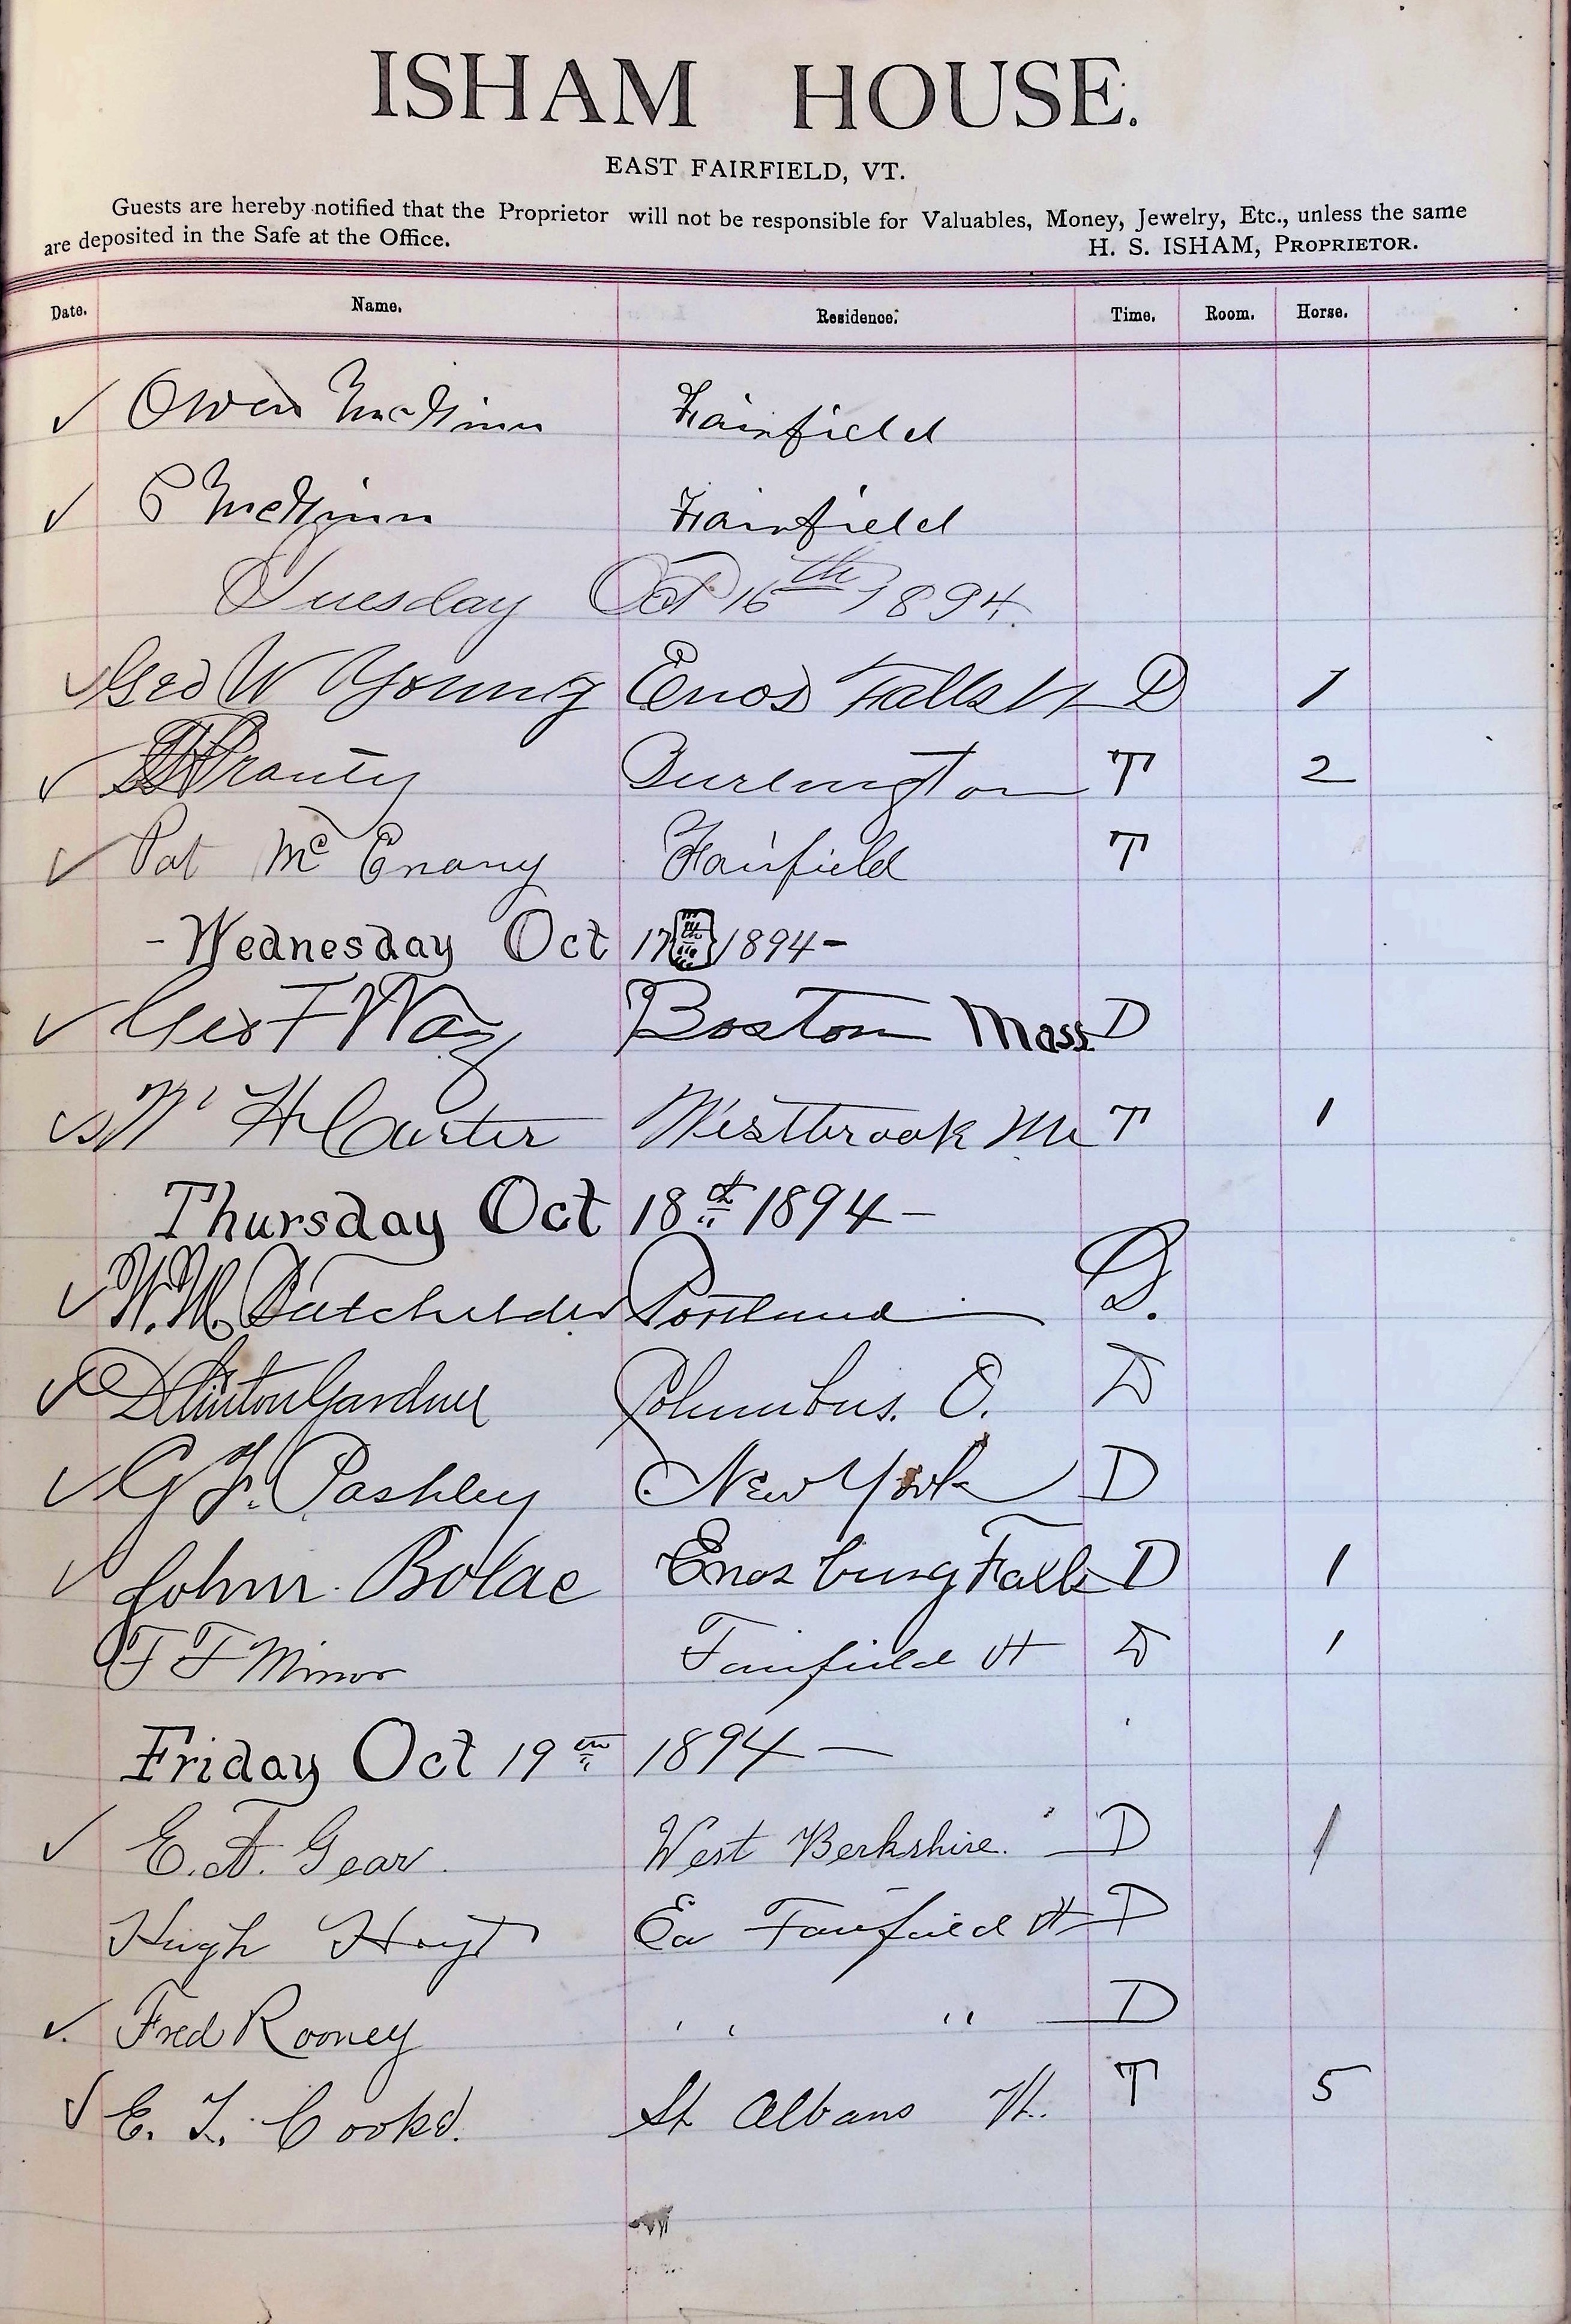 ISHAM HOUSE.
EAST FAIRFIELD, VT.
Guests are hereby notified that the Proprietor will not be responsible for Valuables, Money, Jewelry, Etc., unless the same
are deposited in the Safe at the Office. H. S. ISHAM, PROPRIETOR.
Date. Name. Residence. Time. Room. Horse.
✓ Owen McGinn Fairfield
✓ P McGinn Fairfield
Tuesday Oct 16th 1894.
✓ Geo W Young Enos Falls Vt D 1
✓ Prouty Burlington T 2
✓ Pat Mc Enany Fairfield T
- Wednesday Oct 17th 1894 -
✓ Geo F Way Boston Mass D
✓ H Carter Westbrook Me T 1
Thursday Oct 18th 1894 -
✓ W. M. Batchelder Portland D.
✓ D Clinton Gardner Columbus. O. D
✓ G F. Pashley New York D
✓ John Bolac Enosburg Falls D 1
F F Minor Fairfield Vt D 1
Friday Oct 19th 1894 -
✓ E. A. Gear. West Berkshire. D 1
Hugh Hoyt Ea Fairfield Vt D
✓ Fred Rooney " " D
✓ E. L. Cook St Albans Vt. T 5